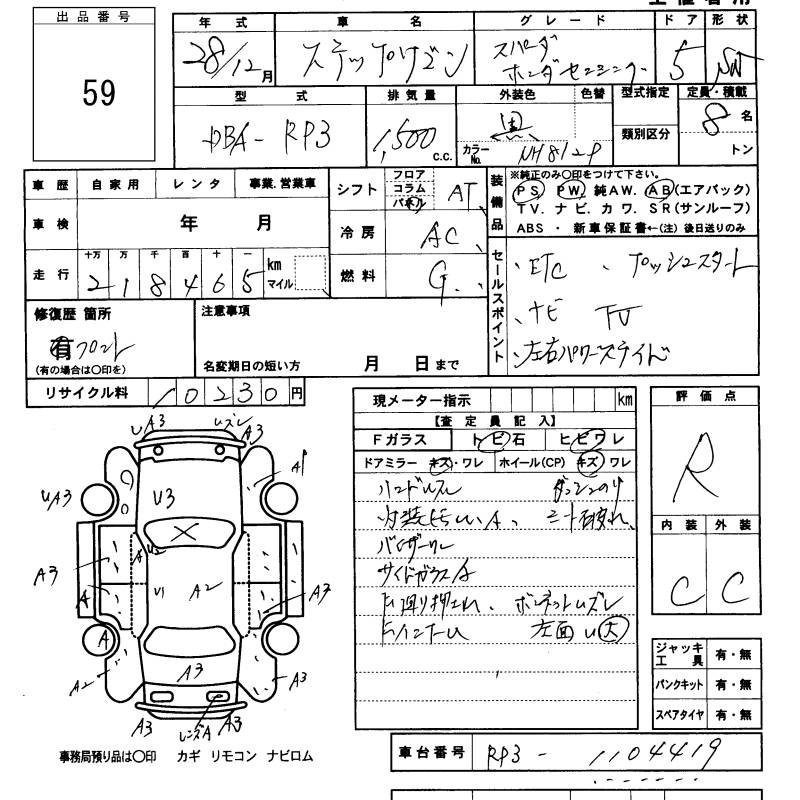 出品番号
59
年式 車名 グレード ドア 形状
28/12月 ステップワゴン スパーダ ホンダセンシング 5 SW
型式 排気量 外装色 色替 型式指定 定員・積載
DBA-RP3 1,500 c.c. 黒 カラーNo. NH812P 類別区分 8名 トン
車歴 自家用 レンタ 事業.営業車
シフト フロア コラム パネル AT
装備品 ※純正のみ○印をつけて下さい。
PS PW 純AW. AB(エアバック)
TV. ナビ. カワ. SR(サンルーフ)
ABS ・ 新車保証書←(注) 後日送りのみ
車検 年 月
冷房 AC
走行 十万 万 千 百 十 一
218465 km マイル
燃料 G.
セールスポイント
、ETC 、プッシュスタート
、ナビ TV
、左右パワースライド
修復歴 箇所
有 フロント
(有の場合は○印を)
注意事項
名変期日の短い方 月 日まで
リサイクル料 10230円
現メーター指示 km
【査定員記入】
Fガラス トビ石 ヒビワレ
ドアミラー キズ・ワレ ホイール(CP) キズ ワレ
ハンドルスレ ダッシュのり
バイザーワレ
サイドガラスA
ボンネットムズレ
左面U大
評価点
R
内装 外装
C C
ジャッキ工具 有・無
パンクキット 有・無
スペアタイヤ 有・無
UA3 ムズレ A3
A1
U3
UA3
A3 A
U1 A2
A A3
A
A2 A3 A3
A3 レンズA A3
事務局預り品は○印 カギ リモコン ナビロム
車台番号 RP3-1104419